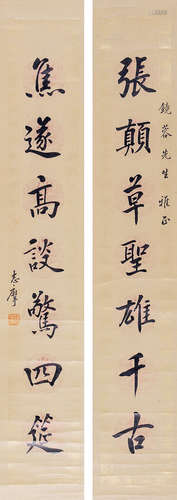 張顛草聖雄千古
鏡蓉先生雅正
焦遂高談驚四筵
志摩